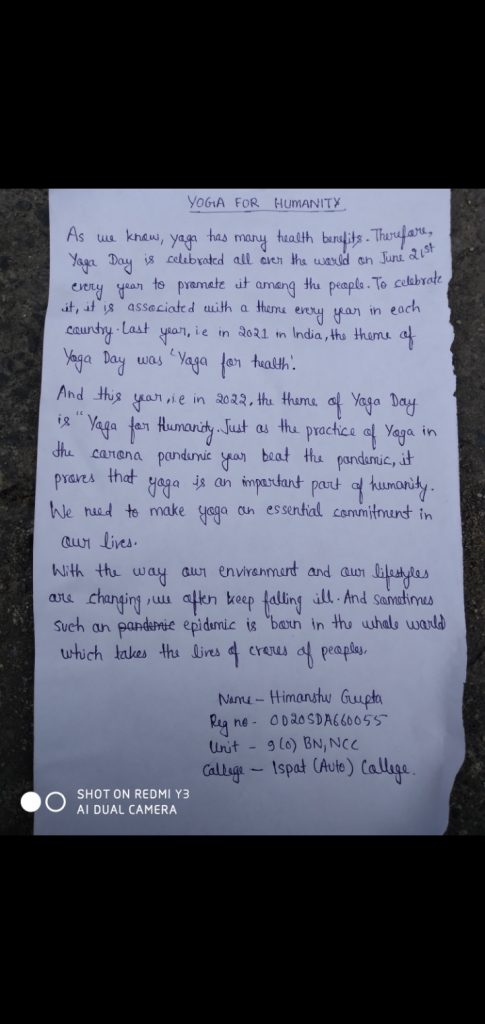 YOGA FOR HUMANITY
As we know, yoga has many health benefits. Therefore,
Yoga Day is celebrated all over the world on June 21st
every year to promote it among the people. To celebrate
it, it is associated with a theme every year in each
country. Last year, i.e in 2021 in India, the theme of
Yoga Day was 'Yoga for health'.
And this year, i.e in 2022, the theme of Yoga Day
is "Yoga for Humanity. Just as the practice of Yoga in
the corona pandemic year beat the pandemic, it
proves that yoga is an important part of humanity.
We need to make yoga an essential commitment in
our lives.
With the way our environment and our lifestyles
are changing, we often keep falling ill. And sometimes
such an pandemic epidemic is born in the whole world
which takes the lives of crores of peoples.
Name - Himanshu Gupta
Reg no - OD20SDA660055
Unit - 9(O) BN, NCC
College - Ispat (Auto) College.
SHOT ON REDMI Y3
AI DUAL CAMERA